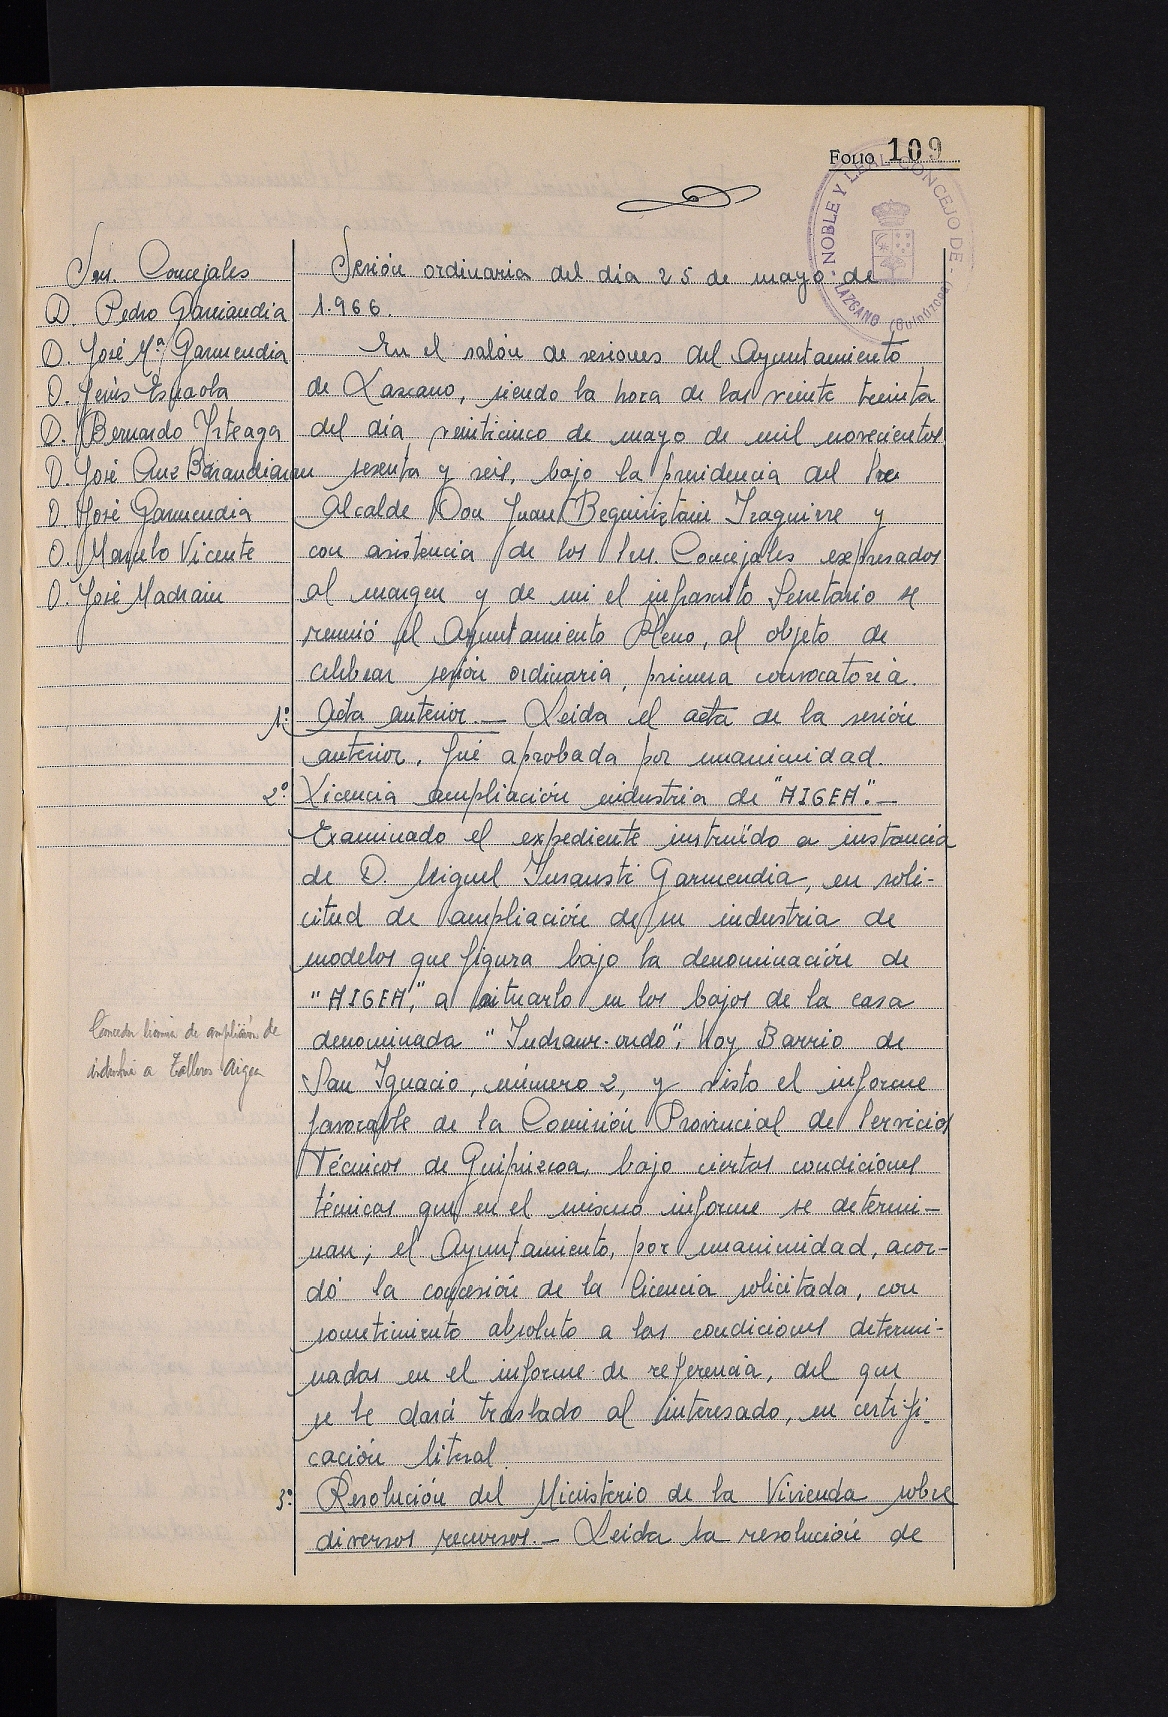 FOLIO 109
NOBLE Y LEAL CONCEJO DE
LAZCANO (Guipúzcoa)
Sres. Concejales
D. Pedro Garciandia
D. José Mª Garmendia
D. Jesús Esnaola
D. Bernardo Irteaga
D. José Cruz Barandiaran
D. José Garmendia
D. Marcelo Vicente
D. José Madrain
Sesión ordinaria del día 25 de mayo de
1.966.
En el salón de sesiones del Ayuntamiento
de Lazcano, siendo la hora de las veinte treinta
del día veinticinco de mayo de mil novecientos
sesenta y seis, bajo la presidencia del Sr.
Alcalde Don Juan Beguiristain Izaguirre y
con asistencia de los Sres. Concejales expresados
al margen y de mi el infrascrito Secretario se
reunió el Ayuntamiento Pleno, al objeto de
celebrar sesión ordinaria, primera convocatoria.
1º. Acta anterior.— Leida el acta de la sesión
anterior, fué aprobada por unanimidad.
2º. Licencia ampliación industria de "AIGEA".—
Examinado el expediente instruído a instancia
de D. Miguel Insausti Garmendia, en soli-
citud de ampliación de su industria de
modelos que figura bajo la denominación de
"AIGEA", a situarlo en los bajos de la casa
denominada "Indraur-ondo", hoy Barrio de
San Ignacio, número 2, y visto el informe
favorable de la Comisión Provincial de Servicios
Técnicos de Guipúzcoa, bajo ciertas condiciones
técnicas que en el mismo informe se determi-
nan; el Ayuntamiento, por unanimidad, acor-
dó la concesión de la licencia solicitada, con
sometimiento absoluto a las condiciones determi-
nadas en el informe de referencia, del que
se le dará traslado al interesado, en certifi-
cación literal.
Conceder licencia de ampliación de
industria a Talleres Aigea
3º. Resolución del Ministerio de la Vivienda sobre
diversos recursos.— Leida la resolución de